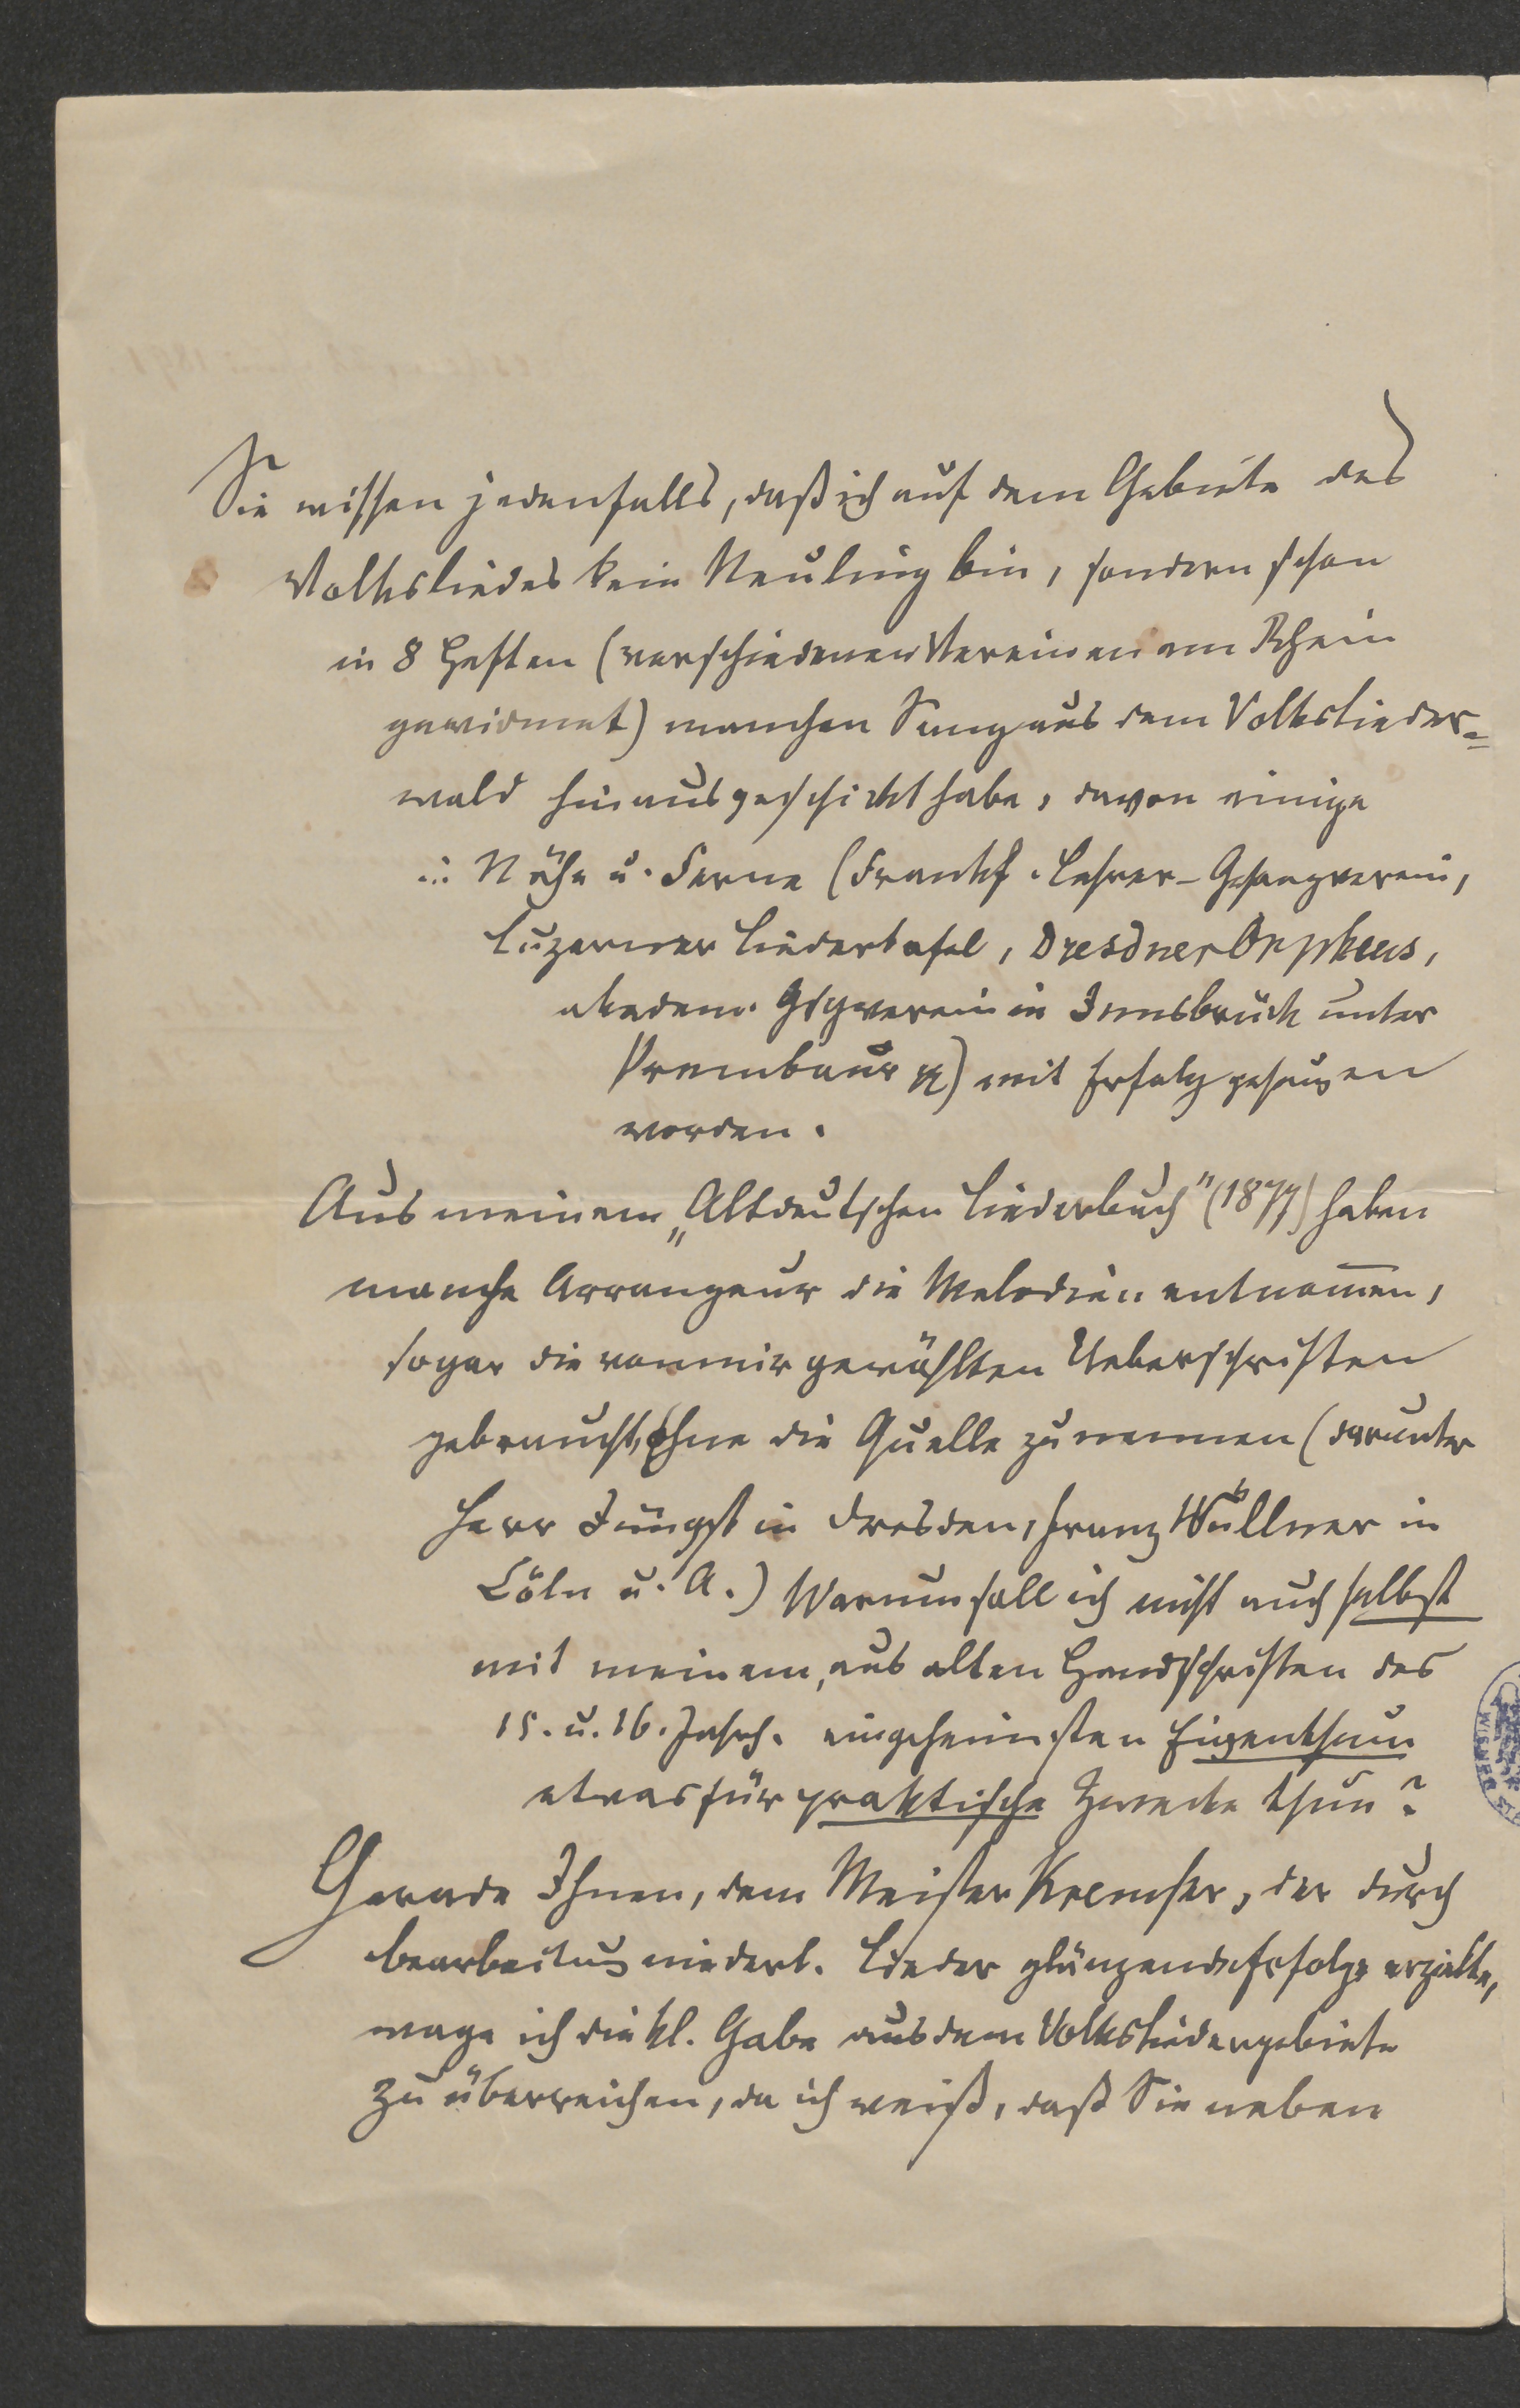 Sie wissen jedenfalls, daß ich auf dem Gebiete des
Volksliedes kein Neuling bin, sondern schon
in 8 Heften (verschiedenen Vereinen am Rhein
gewidmet) manchen Sang aus dem Volkslieder=
wald hinausgeschickt habe, davon einige
in Nähe u. Ferne (Frankf. Lehrer-Gesangverein,
Luzerner Liedertafel, Dresdner Orpheus,
akadem. Gsgverein in Innsbruck unter
Prembaur) mit Erfolg gesungen
worden.
Aus meinem „Altdeutschen Liederbuch" (1877) haben
manche Arrangeur die Melodien entnom̅en,
sogar die von mir gewählten Ueberschriften
gebraucht, ohne die Quelle zu nennen (darunter
Herr Jüngst in Dresden, Franz Wüllner in
Cöln u. A.) Warum soll ich nicht auch selbst
mit meinem, aus alten Handschriften des
15. u. 16. Jahrh. eingeheimsten Eigenthum
etwas für praktische Zwecke thun?
Gerade Ihnen, dem Meister Kremser, der durch
bearbeitung niederl. Lieder glänzende Erfolge erzielte,
wage ich die kl. Gabe aus dem Volksliedergebiete
zu überreichen, da ich weiß, daß Sie neben
WIENER